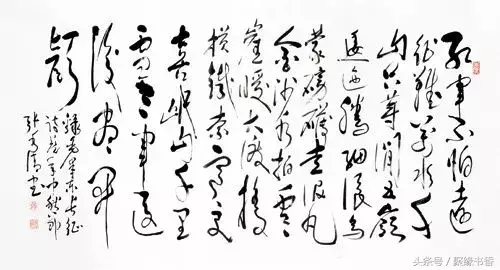 红军不怕远
征难万水千
山只等闲五岭
逶迤腾细浪乌
蒙磅礴走泥丸
金沙水拍云
崖暖大渡桥
横铁索寒更
喜岷山千里
雪三军过
后尽开
颜
录毛泽东长征
诗
张 书
头条号 / 缘书香